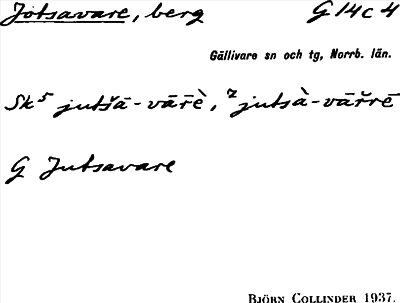 Jotsavare, berg G 14 c 4
Gällivare sn och tg, Norrb. län.
Sk⁵ jutšā-vārè, ² jutsà-vāřrē
G Jutsavare
BJÖRN COLLINDER 1937.